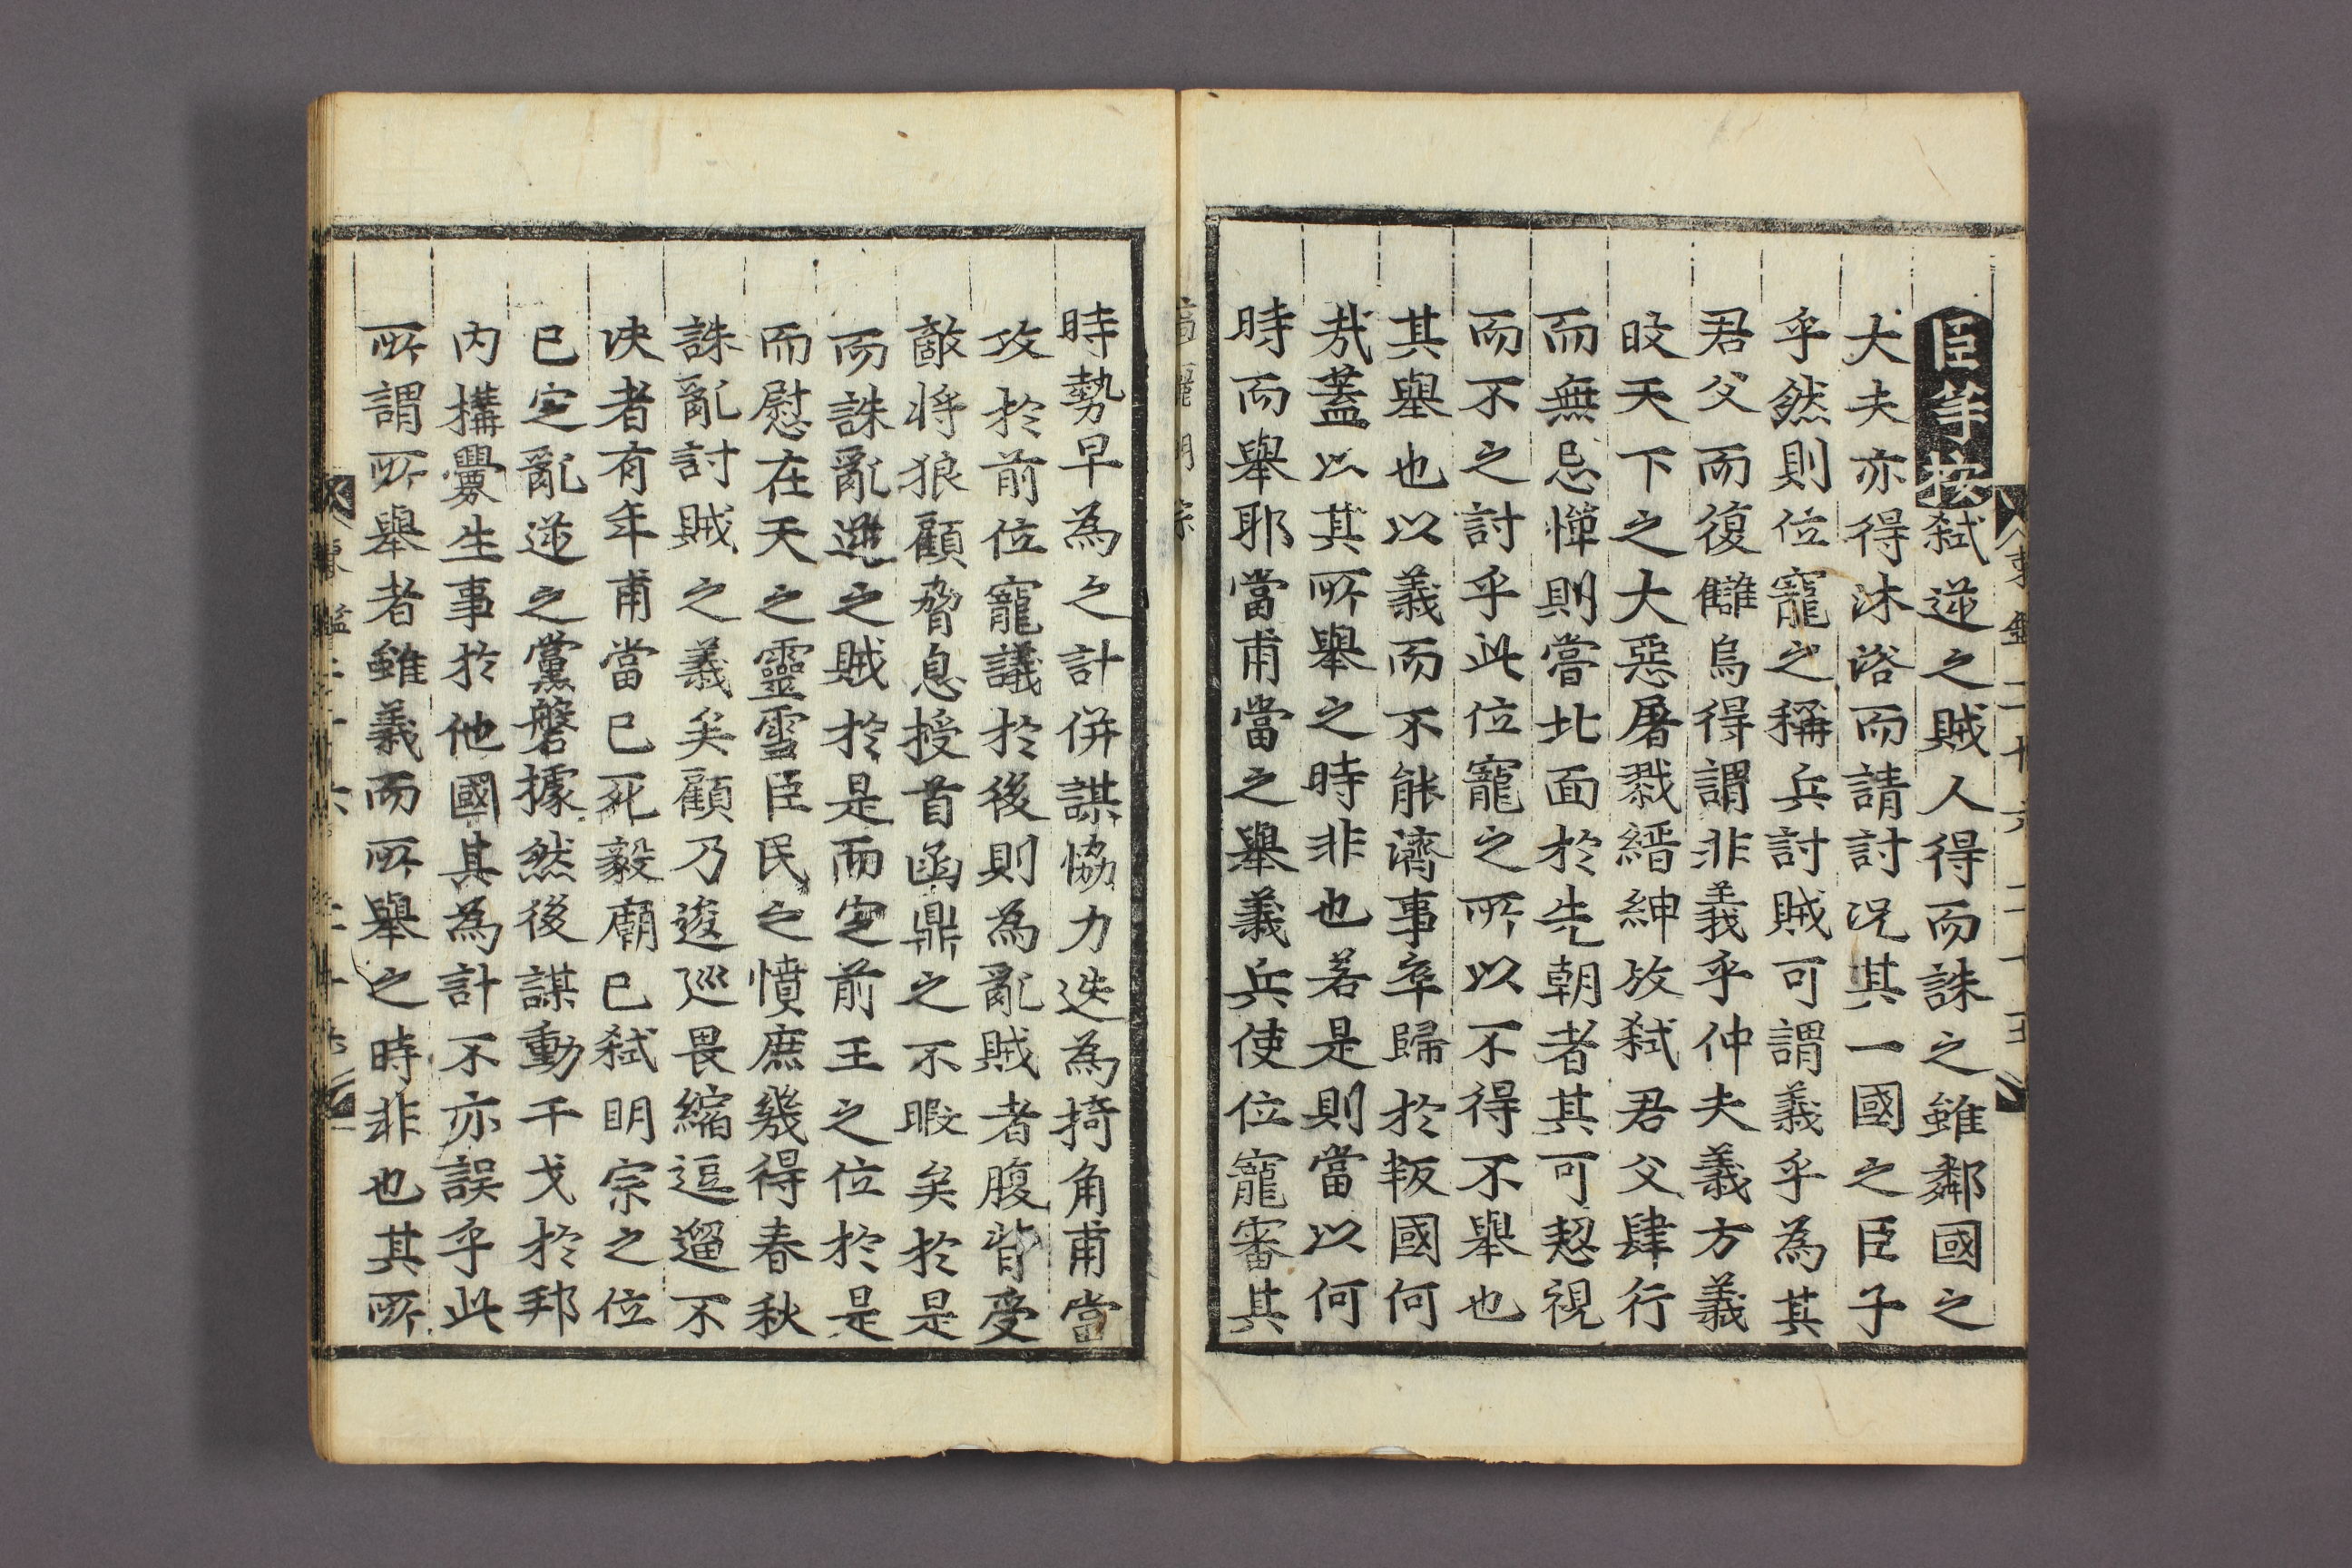 臣等按弑逆之賊人得而誅之雖鄰國之
大夫亦得沐浴而請討况其一國之臣子
乎然則位寵之稱兵討賊可謂義乎為其
君父而復讎烏得謂非義乎仲夫義方義
旼天下之大惡屠戮縉紳放弑君父肆行
而無忌憚則嘗北面於先朝者其可恝視
而不之討乎此位寵之所以不得不舉也
其舉也以義而不能濟事卒歸於叛國何
㦲蓋以其所舉之時非也若是則當以何
時而舉耶當甫當之舉義兵使位寵審其
高麗明宗
時勢早為之計併謀協力迭為掎角甫當
攻於前位寵議於後則為亂賊者腹背受
敵將狼顧脅息授首函鼎之不暇矣於是
而誅亂逆之賊於是而定前王之位於是
而慰在天之靈雪臣民之憤庶幾得春秋
誅亂討賊之義矣顧乃逡巡畏縮逗遛不
决者有年甫當已死毅廟已弑明宗之位
已定亂逆之黨磐據然後謀動干戈於邦
內搆釁生事於他國其為計不亦誤乎此
所謂所舉者雖義而所舉之時非也其所